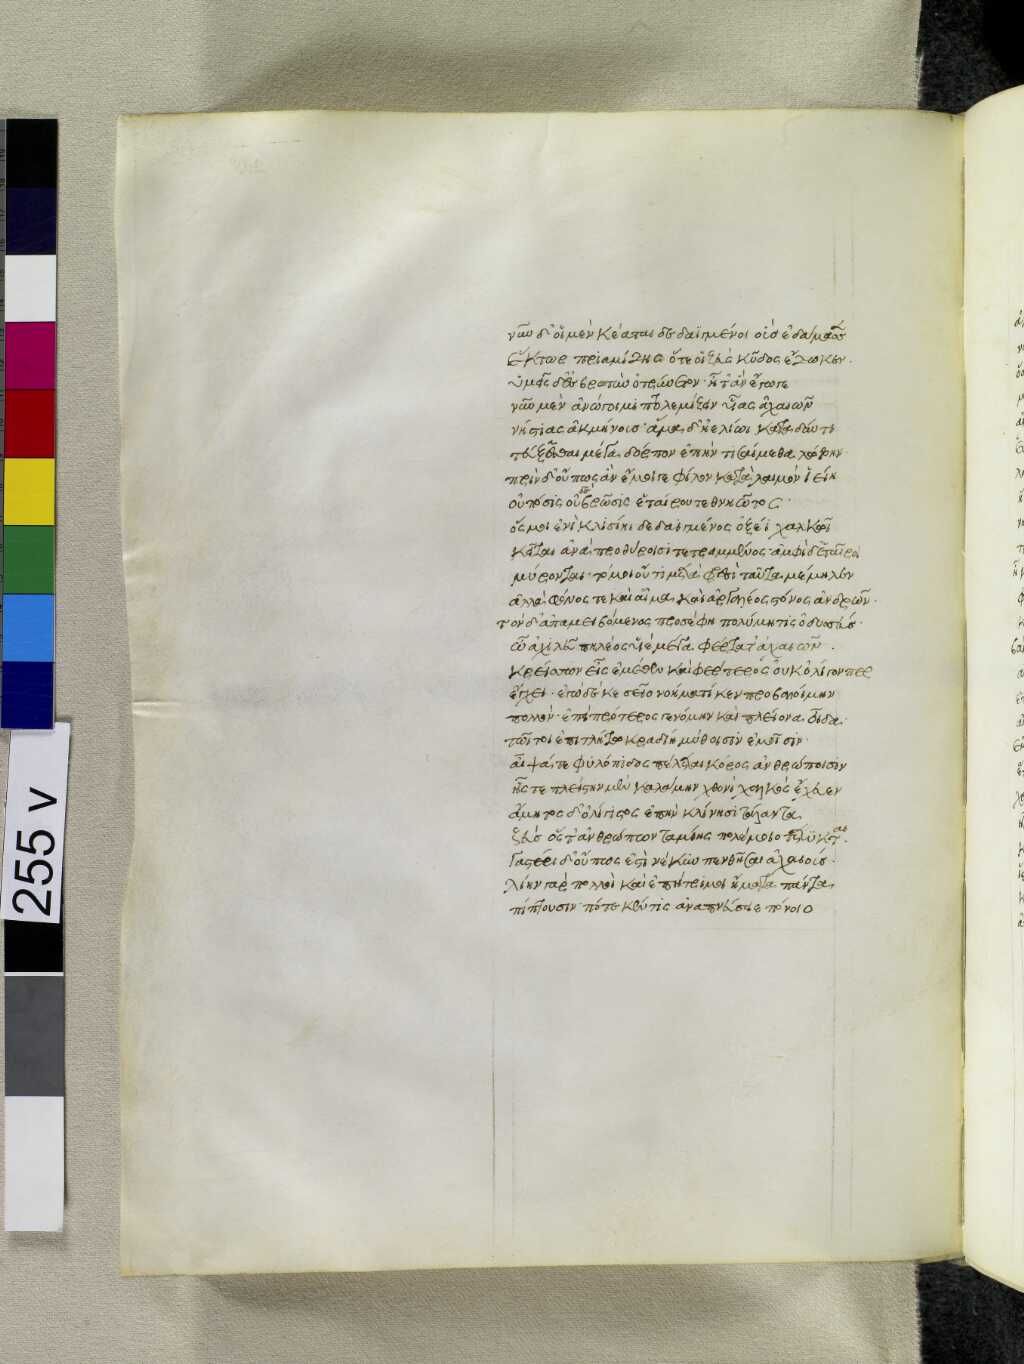 255 v
νῦν δ' οἳ μὲν κέαται δεδαϊγμένοι οὓς ἐδάμασσεν
Ἕκτωρ πριαμίδης ὅτε οἱ ζεὺς κῦδος ἔδωκεν.
ὑμεῖς δ' ἐς βρωτὺν ὀτρύνετον· ἦ τ' ἂν ἔγωγε
νῦν μὲν ἀνώγοιμι πτολεμίζειν υἷας ἀχαιῶν
νήστιας ἀκμήνους· ἅμα δ' ἠελίωι καταδύντι
τεύξεσθαι μέγα δόρπον ἐπὴν τισαίμεθα λώβην·
πρὶν δ' οὔ πως ἂν ἔμοιγε φίλον κατὰ λαιμὸν ἰείη
οὐ πόσις οὐδὲ βρῶσις ἑταίρου τεθνηῶτος·
ὅς μοι ἐνὶ κλισίηι δεδαϊγμένος ὀξέϊ χαλκῶι
κεῖται ἀνὰ προθύροισι τετραμμένος· ἀμφὶ δ' ἑταῖροι
μύρονται· τό μοι οὔ τι μετὰ φρεσὶ ταῦτα μέμηλεν
ἀλλὰ φόνος τε καὶ αἷμα καὶ ἀργαλέος στόνος ἀνδρῶν·
τὸν δ' ἀπαμειβόμενος προσέφη πολύμητις ὀδυσσεύς·
ὦ ἀχιλεῦ πηλέος υἱὲ μέγα φέρτατ' ἀχαιῶν·
κρείσσων εἰς ἐμέθεν καὶ φέρτερος οὐκ ὀλίγον περ
ἔγχει· ἐγὼ δέ κε σεῖο νοήματί κεν προβαλοίμην
πολλὸν· ἐπὶ πρότερος γενόμην καὶ πλείονα οἶδα·
τῶ τοι ἐπιτλήτω κραδίη μύθοισιν ἐμοῖσιν·
αἶψά τε φυλόπιδος πέλεται κόρος ἀνθρώποισιν
ἧς τε πλείστην μὲν καλάμην χθονὶ χαλκὸς ἔχευεν
ἄμητος δ' ὀλίγιστος ἐπὴν κλίνησι τάλαντα
ζεὺς ὅς τ' ἀνθρώπων ταμίης πολέμοιο τέτυκται·
γαστέρι δ' οὔ πως ἔστι νέκυν πενθῆσαι ἀχαιούς·
λίην γὰρ πολλοὶ καὶ ἐπήτριμοι ἤματα πάντα
πίπτουσιν· πότε κέν τις ἀναπνεύσειε πόνοιο